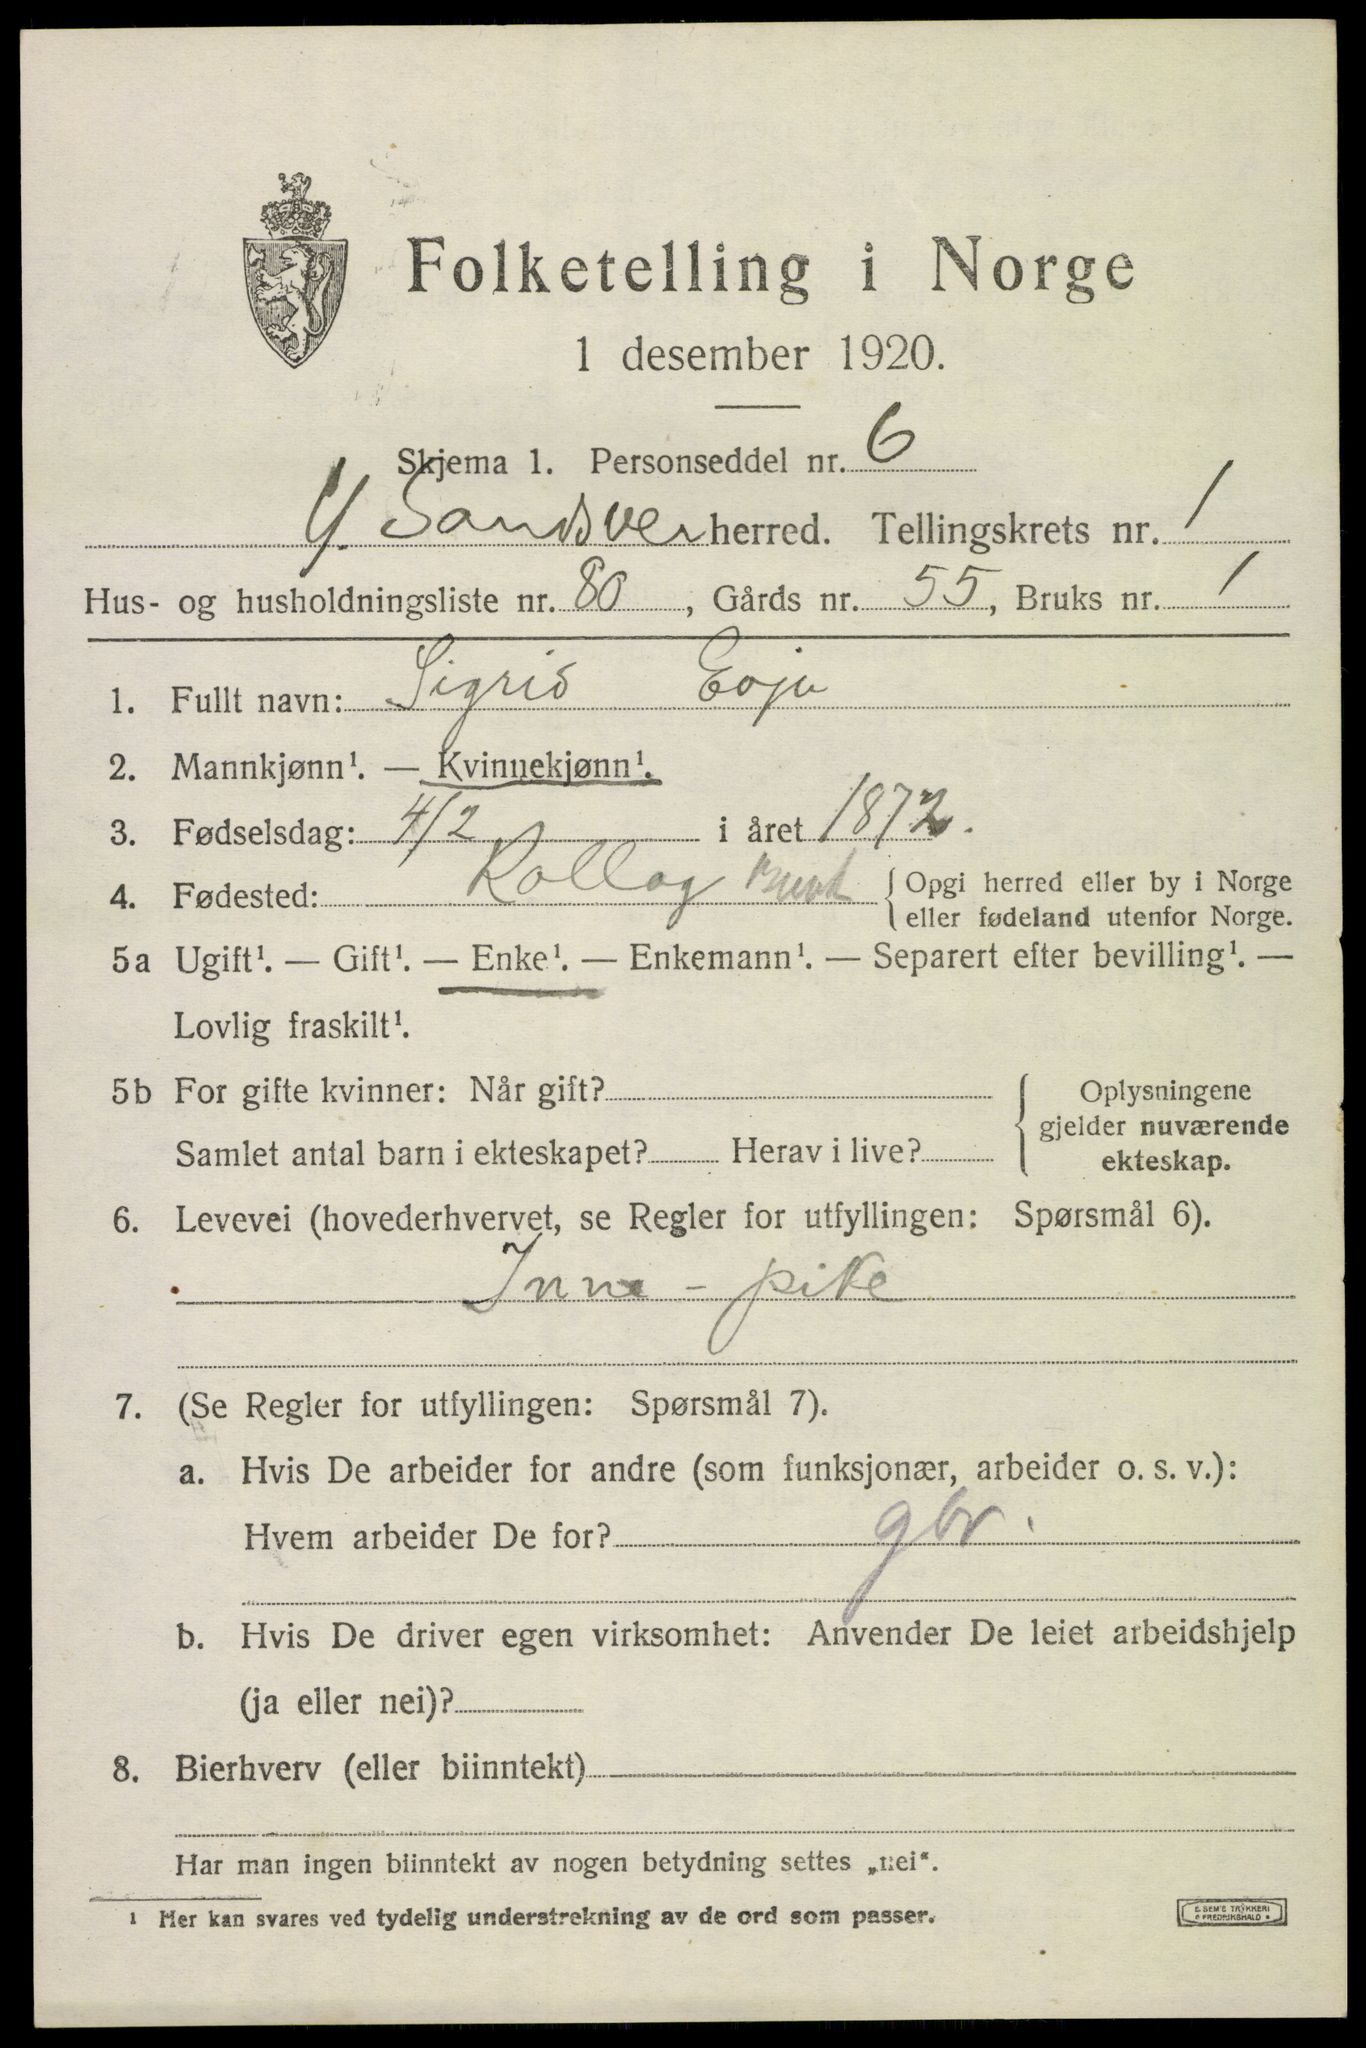 Folketelling i Norge
1 desember 1920.
Skjema 1. Personseddel nr. 6
Y. Sandsver herred. Tellingskrets nr. 1
Hus- og husholdningsliste nr. 80, Gårds nr. 55, Bruks nr. 1
1. Fullt navn: Sigrid
2. Mannkjønn¹. — Kvinnekjønn¹.
3. Fødselsdag: 4/2 i året 1872.
4. Fødested: Rollag Busk { Opgi herred eller by i Norge
eller fødeland utenfor Norge.
5a Ugift¹. — Gift¹. — Enke¹. — Enkemann¹. — Separert efter bevilling¹. —
Lovlig fraskilt¹.
5b For gifte kvinner: Når gift? { Oplysningene
gjelder nuværende
Samlet antal barn i ekteskapet? Herav i live?
ekteskap.
6. Levevei (hovederhvervet, se Regler for utfyllingen: Spørsmål 6).
Inne - pike
7. (Se Regler for utfyllingen: Spørsmål 7).
a. Hvis De arbeider for andre (som funksjonær, arbeider o. s. v.):
Hvem arbeider De for? gbr.
b. Hvis De driver egen virksomhet: Anvender De leiet arbeidshjelp
(ja eller nei)?
8. Bierhverv (eller biinntekt)
Har man ingen biinntekt av nogen betydning settes „nei“.
¹ Her kan svares ved tydelig understrekning av de ord som passer.
E. SEM'S TRYKKERI
FREDRIKSHALD